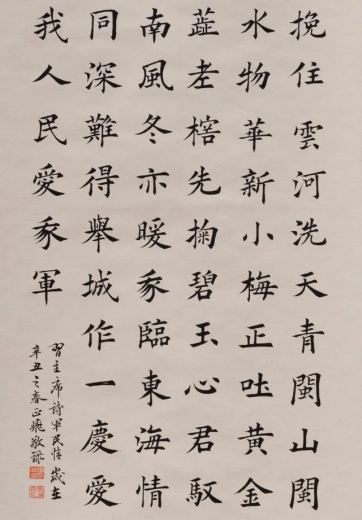 挽住雲河洗天青閩山閩
水物華新小梅正吐黃金
老榕先掬碧玉心君馭
南風冬亦暖我臨東海情
同深難得舉城作一慶愛
我人民愛我軍
習主席詩軍民情歲在
辛丑之春正敬